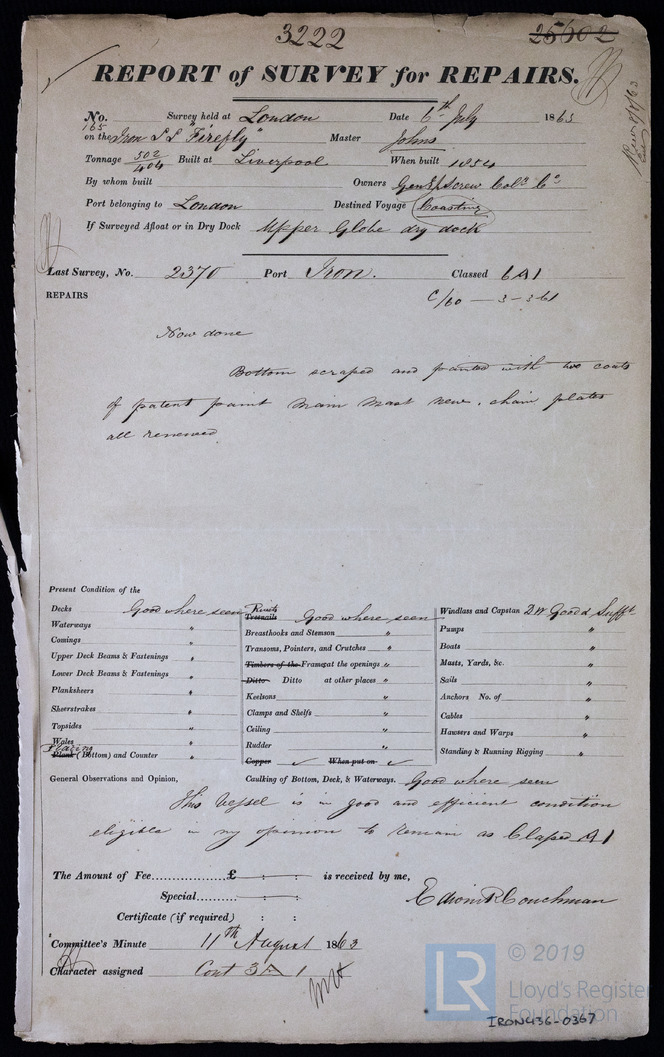 3222
25602
REPORT of SURVEY for REPAIRS.
No. 165 Survey held at London Date 6th July 1863
on the Iron S S "Firefly" Master Johns
Tonnage 502/404 Built at Liverpool When built 1854
By whom built Owners Genl Screw Colr Co
Port belonging to London Destined Voyage Coasting
If Surveyed Afloat or in Dry Dock Upper Globe dry dock
Last Survey, No. 2370 Port Iron. Classed 6A1
C/60 — 3-61
REPAIRS
Now done
Bottom scraped and painted with two coats
of patent paint Main Mast new, chain plates
all renewed
Present Condition of the
Decks Good where seen
Waterways "
Comings "
Upper Deck Beams & Fastenings "
Lower Deck Beams & Fastenings "
Planksheers "
Sheerstrakes "
Topsides "
Wales "
Plating
Plank (Bottom) and Counter "
Rivets
Treenails Good where seen
Breasthooks and Stemson "
Transoms, Pointers, and Crutches "
Timbers of the Frame at the openings "
Ditto Ditto at other places "
Keelsons "
Clamps and Shelfs "
Ceiling "
Rudder "
Copper ✓ When put on ✓
Windlass and Capstan 2W Good & Sufft
Pumps "
Boats "
Masts, Yards, &c. "
Sails "
Anchors No. of "
Cables "
Hawsers and Warps "
Standing & Running Rigging "
General Observations and Opinion, Caulking of Bottom, Deck, & Waterways. Good where seen
This Vessel is in good and efficient condition
eligible in my opinion to remain as Classed A1
The Amount of Fee £ : : is received by me,
Special : :
Edwin R Couchman
Certificate (if required) : :
Committee's Minute 11th August 1863
Character assigned Cont 3A 1
© 2019
LR
Lloyd's Register
Foundation
IRON436-0367